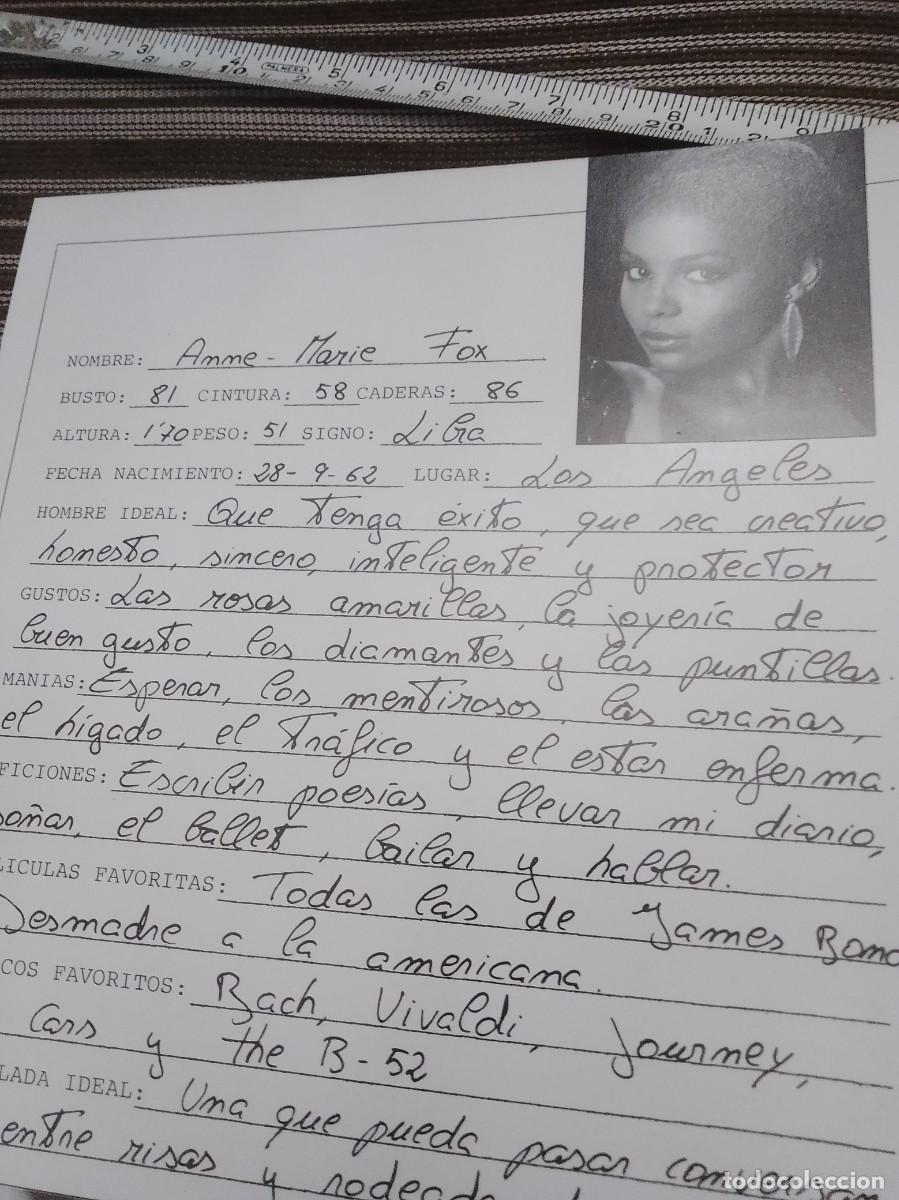 PALMERA
NOMBRE: Anne-Marie Fox
BUSTO: 81 CINTURA: 58 CADERAS: 86
ALTURA: 1'70 PESO: 51 SIGNO: Libra
FECHA NACIMIENTO: 28-9-62 LUGAR: Los Angeles
HOMBRE IDEAL: Que tenga éxito, que sea creativo,
honesto, sincero, inteligente y protector
GUSTOS: Las rosas amarillas, la joyería de
buen gusto, los diamantes y las puntillas.
MANIAS: Esperar, los mentirosos, las arañas,
el hígado, el tráfico y el estar enferma.
FICIONES: Escribir poesías, llevar mi diario,
oñar, el ballet, bailar y hablar.
LICULAS FAVORITAS: Todas las de James Bond
Desmadre a la americana.
COS FAVORITOS: Bach, Vivaldi, Journey,
Cars y the B-52
LADA IDEAL: Una que pueda pasar
entre risas y
todocoleccion